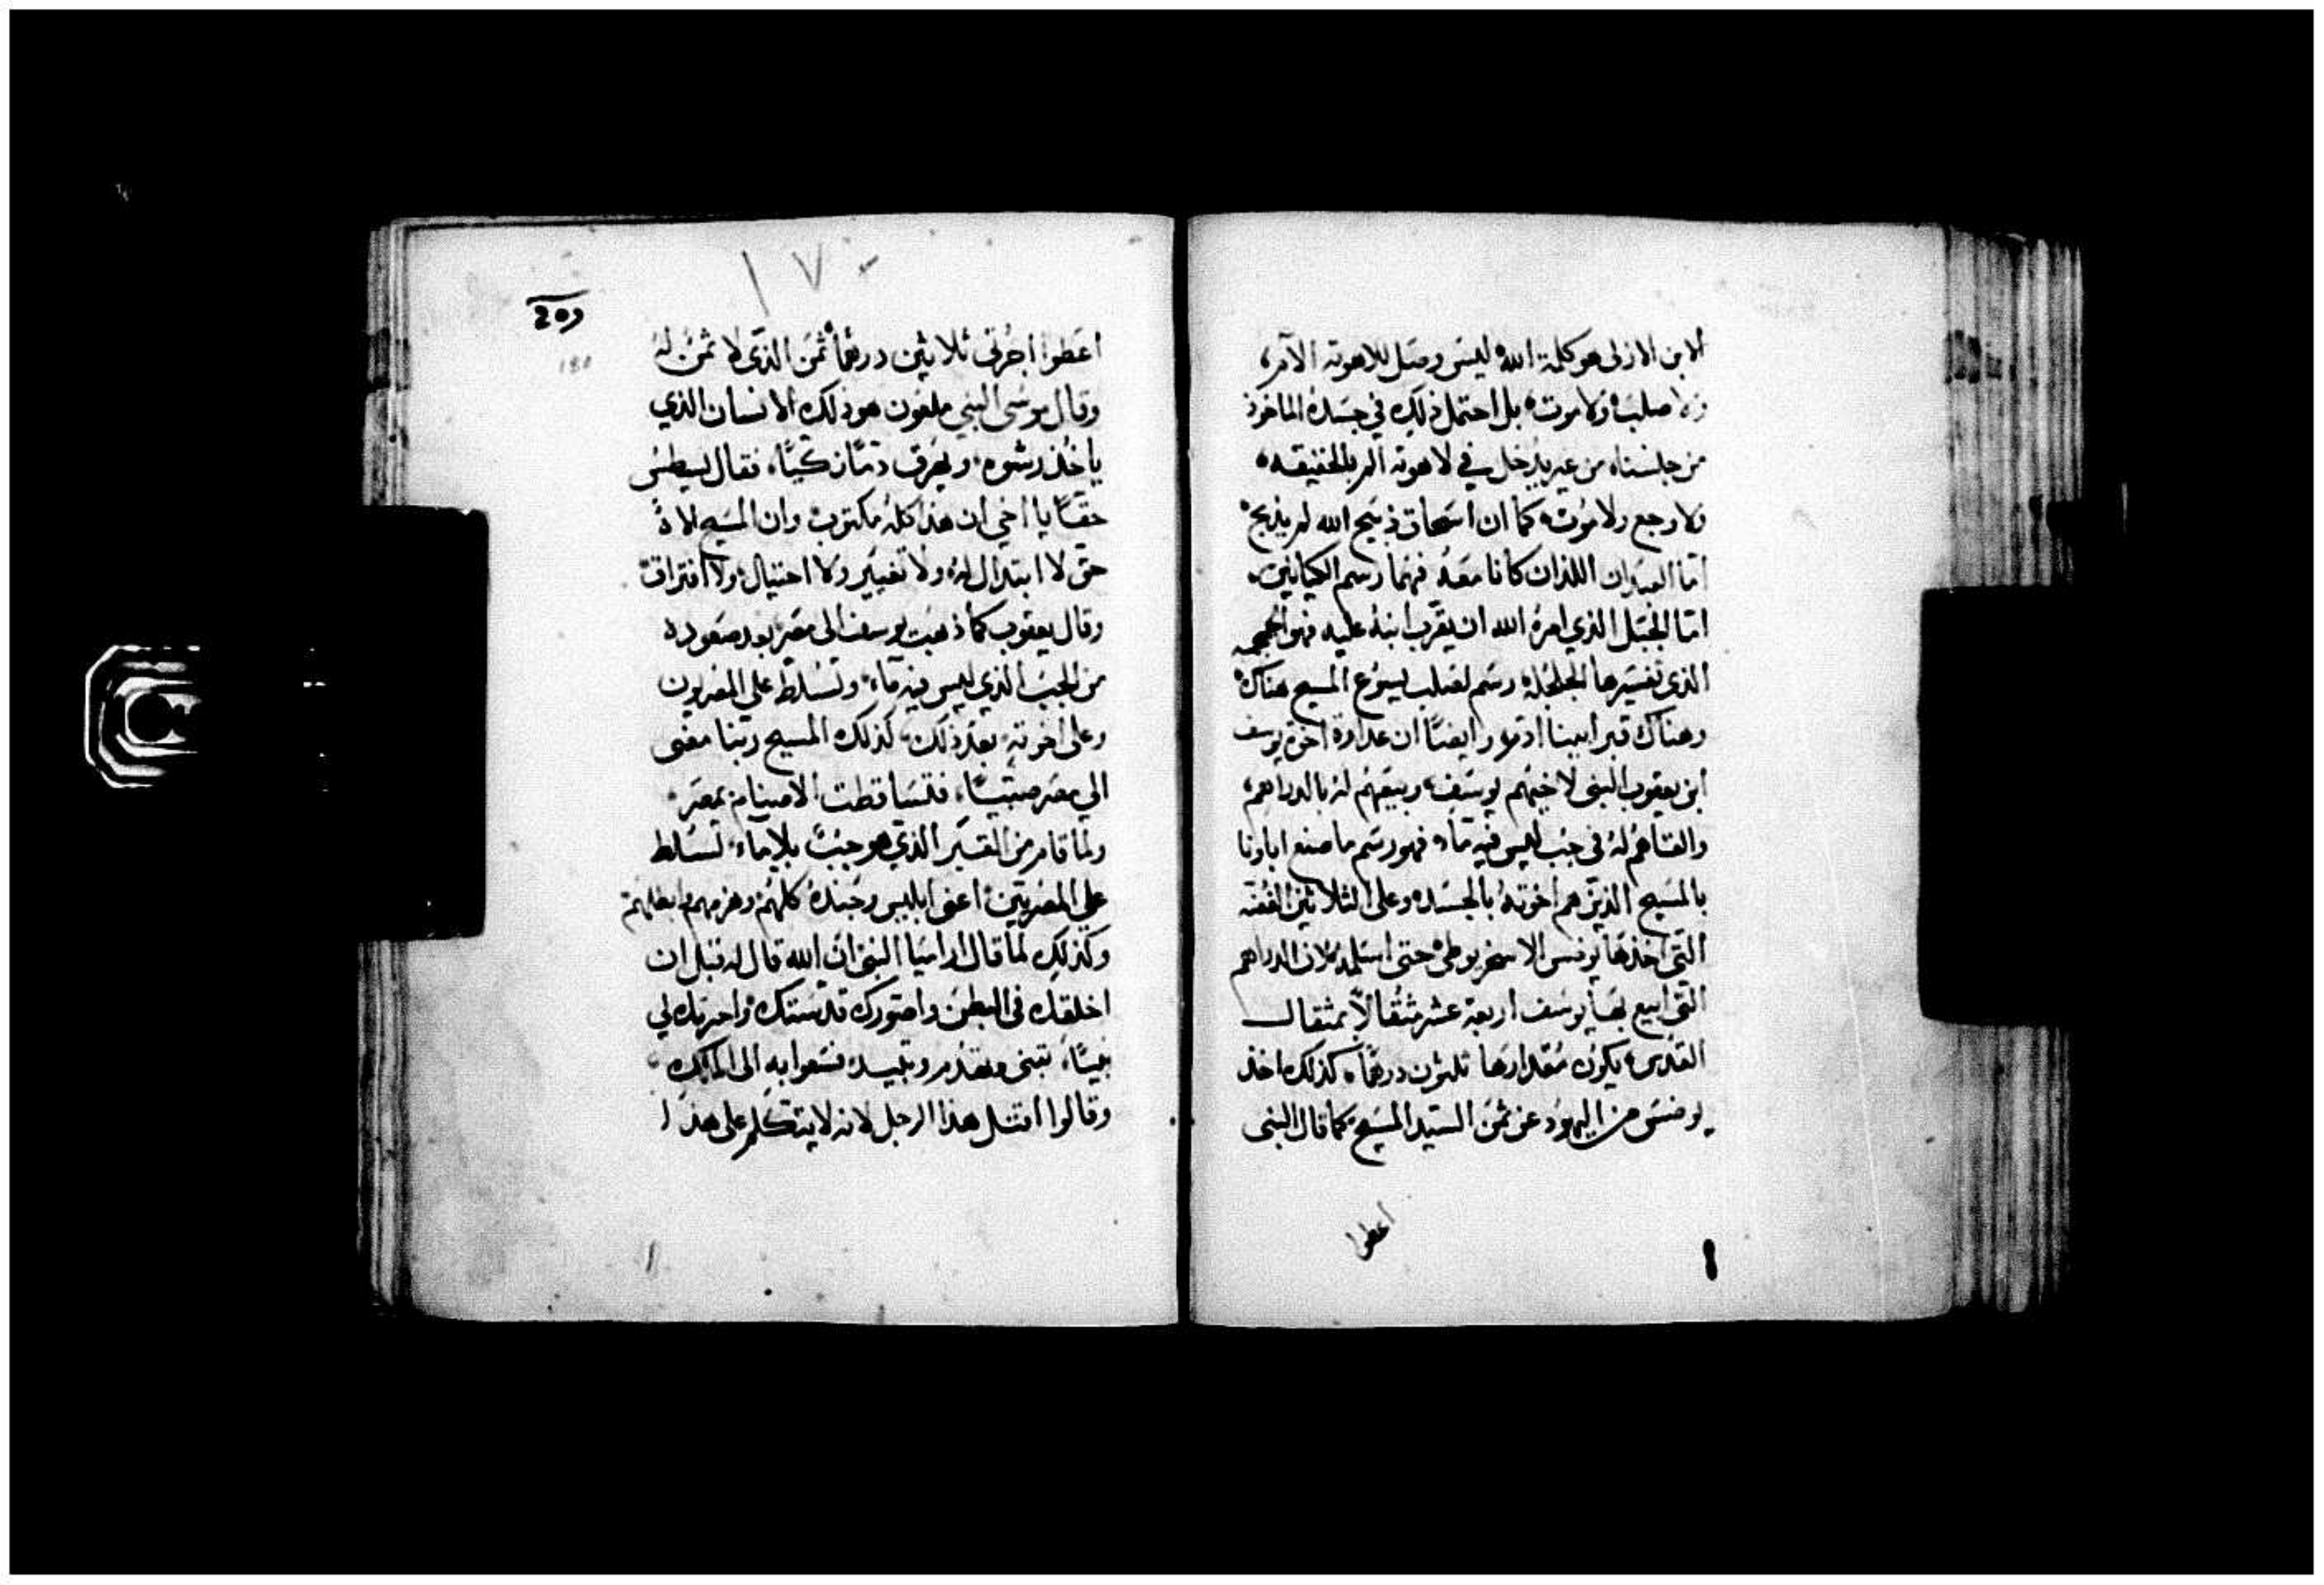 الابن الازلى هو كلمة الله ليس وصل للاهوته الآلام
ولا صلب ولا موت بل احتمل ذلك في جسده الماخوذ
من جلسناه من غير يدخل في لاهوته الم بالحقيقه
ولا وجع ولا موت كما ان اسحاق ذبيح الله لم يذبح
اما العبدان اللذان كانا معه فهما رسم الكيانين
اما الجبل الذي امره الله ان يقرب ابنه عليه فهو الجمجمه
الذى تفسيرها الجلجله رسم لصلب يسوع المسيح هناك
وهناك قبر ابينا ادم وايضًا ان عداوة اخوة يوسف
ابن يعقوب النبى لاخيهم يوسف وبيعهم له بالدراهم
والقاهم له فى جب ليس فيه ماء فهو رسم ما صنع اباونا
بالمسيح الذين هم اخوته بالجسد وعلى الثلاثين الفضه
التى اخذها يودس الاسخريوطى حتى اسلمه لان الدراهم
التى ابيع بها يوسف اربعة عشر مثقالاً بمثقال
القدس يكون مقدارها ثلثون درهماً كذلك اخذ
يودس من اليهود عن ثمن السيد المسيح كما قال النبى
اعطوا
١٧٠
180
اعطوا اجرتى ثلاثين درهماً ثمن الذى لا ثمن له
وقال موسى النبي ملعون هو ذلك الانسان الذي
ياخذ رشوه ويهرق دمًا زكيًا فقال لسيطس
حقًا يا اخي ان هذا كله مكتوب وان المسيح لاه
حق لا ابتدال له ولا تغيير ولا احتيال ولا افتراق
وقال يعقوب كما ذهب يوسف الى مصر بعد صعوده
من الجب الذي ليس فيه ماء وتسلط على المصريون
وعلى اخوته بعد ذلك كذلك المسيح ربنا مضى
الي مصر صبيًا فتساقطت الاصنام بمصر
ولما قام من القبر الذي هو جب بلا ماء تسلط
علي المصريين اعنى ابليس وجنده كلهم وهزمهم
وكذلك لما قال اراميا النبى ان الله قال له قبل ان
اخلقك فى البطن واصورك قدستك واخترتك لي
نبيًا تتنبى وتهدم وتبيد فسعوا به الى الملك
وقالوا اقتل هذا الرجل لانه لا يتكلم على هذا